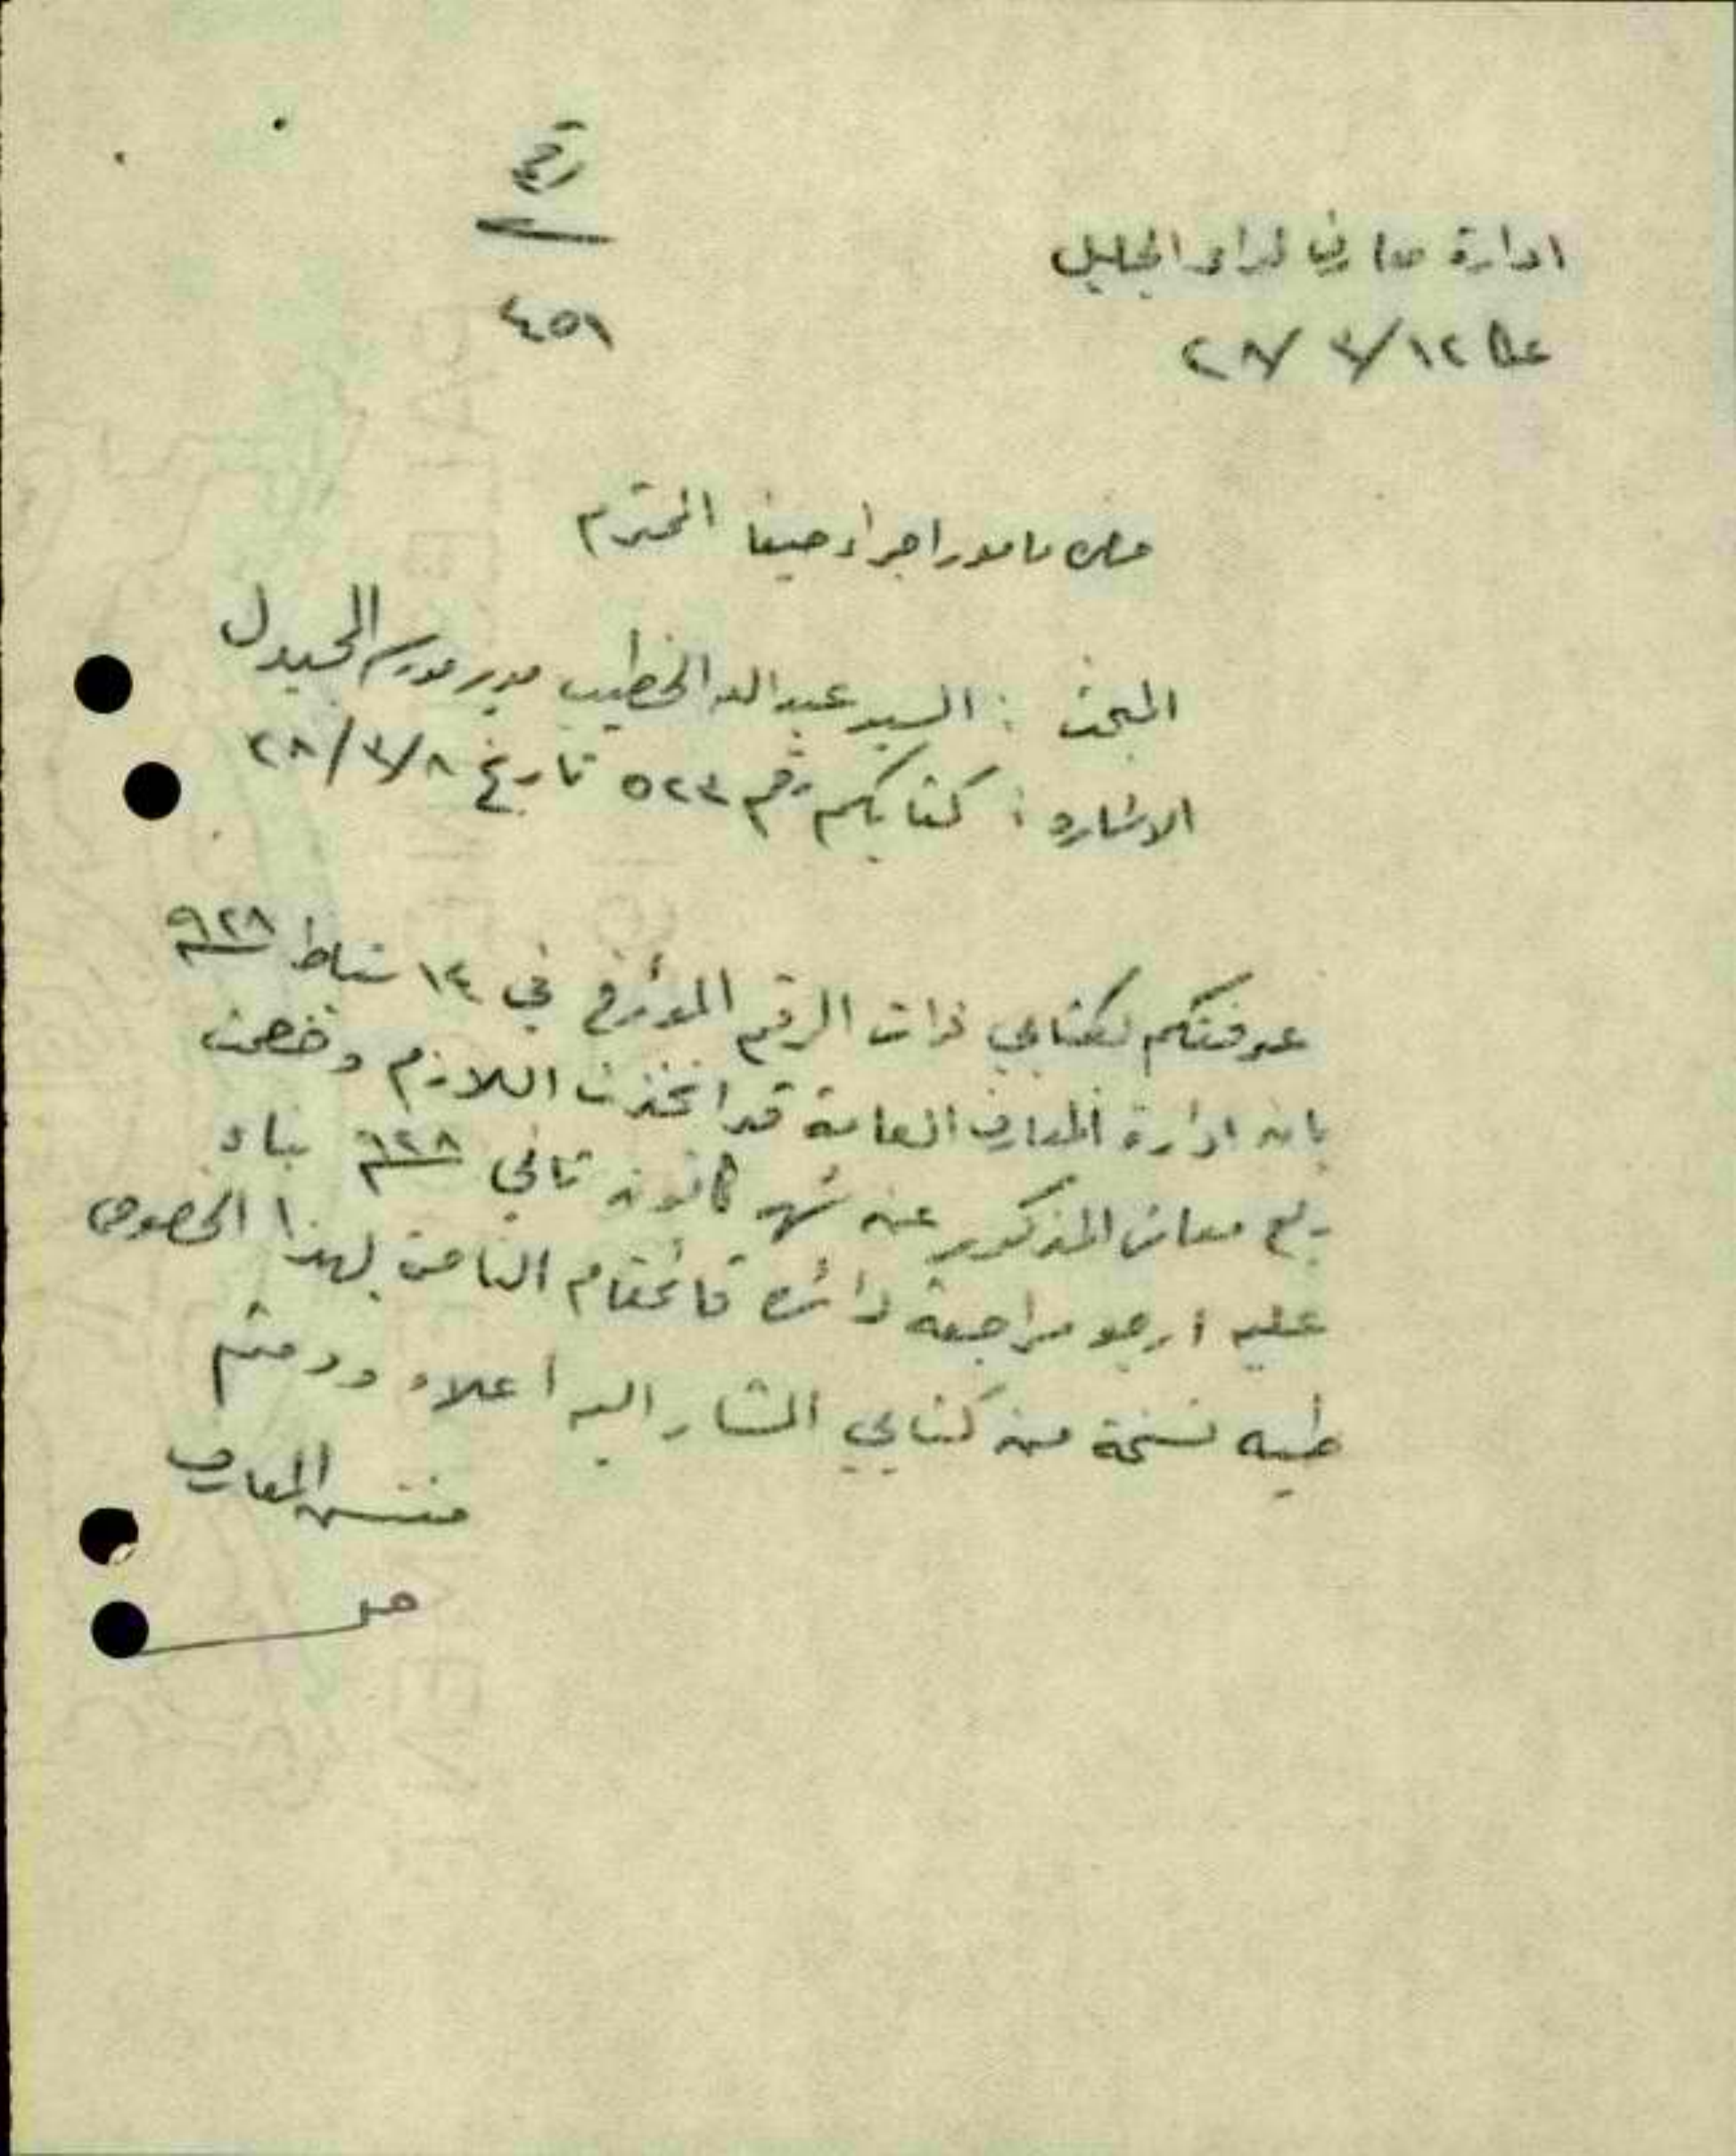 رقم
ادارة معارف لواء الجليل
٤٥٩
عكا ١٢/ ٣/ ٢٨
حضرة مامور اجراء حيفا المحترم
المبحث : السيد عبدالله الخطيب مدير مدرسة المجيدل
الاشارة : كتابكم رقم ٥٢٣ تاريخ ٢٨/٣/٨
عرفتكم بكتابي ذات الرقم المؤرخ في ١٤ شباط ٩٢٨
بان ادارة المعارف العامة قد اتخذت اللازم وخصمت
ربع معاش المذكور عن شهر كانون ثاني ٩٢٨ بناء
عليه ارجو مراجعة دائرة قائمقام الناصرة بهذا الخصوص
طيه نسخة من كتابي المشار اليه اعلاه ودمتم
مفتش المعارف